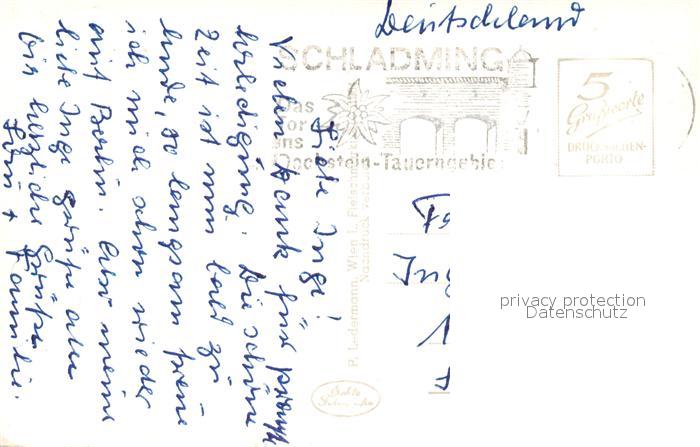 Deutschland
SCHLADMING
Das
Tor
ins
Dachstein-Tauerngebiet
5
Grußworte
DRUCKSACHEN-
PORTO
Liebe Inge!
Vielen Dank für prompte
Erledigung. Die schöne
Zeit ist nun bald zu
Ende, so langsam freue
ich mich schon wieder
auf Berlin. Also meine
liebe Inge Grüße an
Dich herzliche Grüße
+ Familie.
P. Ledermann, Wien I, Fleischmarkt
Nachdruck verboten
Echte
privacy protection
Datenschutz